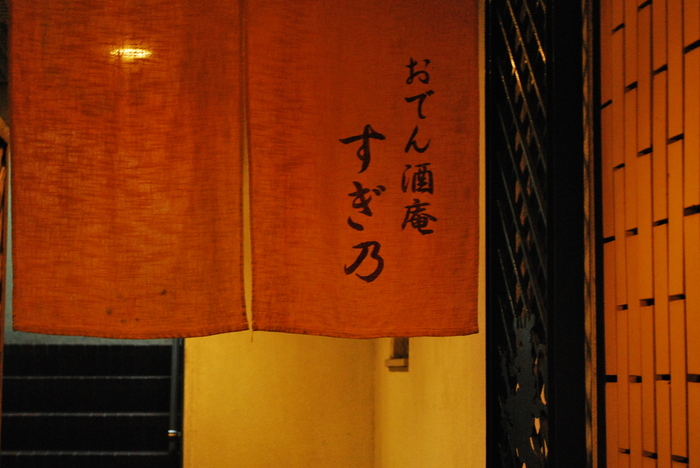 おでん酒庵
すぎ乃